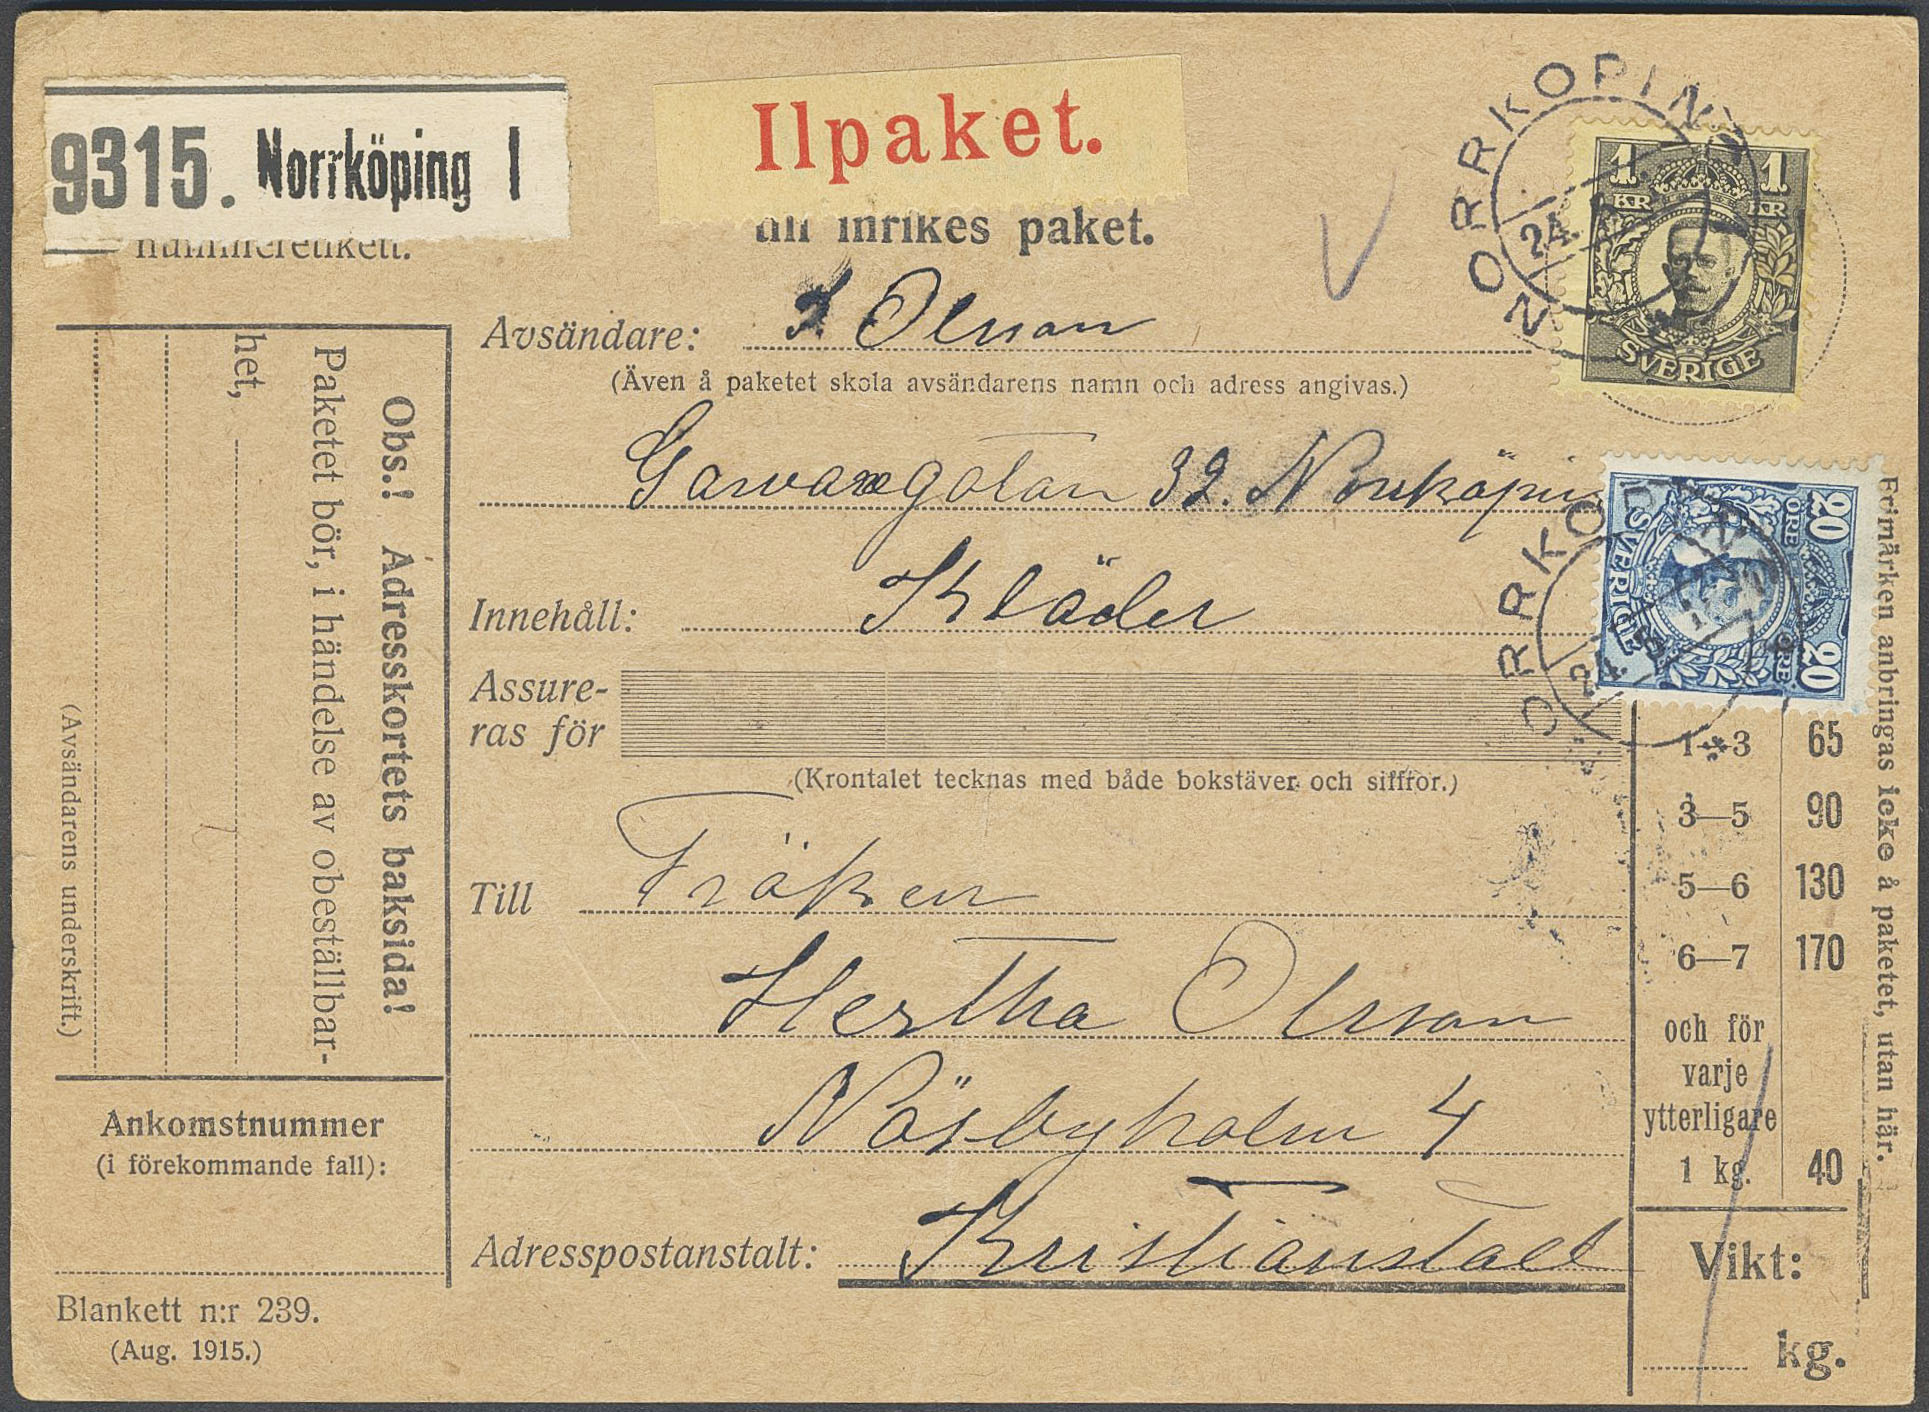 9315. Norrköping 1
Ilpaket.
till inrikes paket.
nummeretikett.
NORRKÖPING
24
1 KR 1 KR
SVERIGE
Avsändare: J. Olsson
(Även å paketet skola avsändarens namn och adress angivas.)
32. Norrköping
Innehåll: Kläder
Assure-
ras för
(Krontalet tecknas med både bokstäver och siffror.)
Till Fröken
Hertha Olsson
Näsbyholm 4
Adresspostanstalt: Kristianstad
NORRKÖPING
24. 5
20 ÖRE 20 ÖRE
SVERIGE
1—3 65
3—5 90
5—6 130
6—7 170
och för
varje
ytterligare
1 kg. 40
Vikt:
kg.
Frimärken anbringas icke å paketet, utan här.
Obs.! Adresskortets baksida!
Paketet bör, i händelse av obeställbar-
het,
(Avsändarens underskrift.)
Ankomstnummer
(i förekommande fall):
Blankett n:r 239.
(Aug. 1915.)